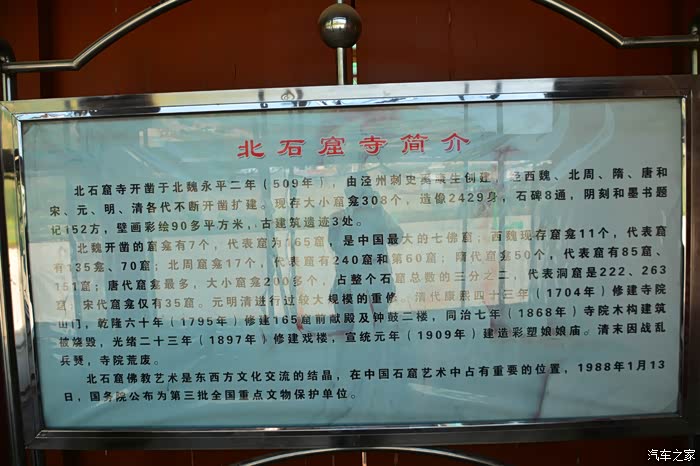 北石窟寺简介
北石窟寺开凿于北魏永平二年（509年），由泾州刺史奚康生创建，经西魏、北周、隋、唐和
宋、元、明、清各代不断开凿扩建。现存大小窟龛308个，造像2429身，石碑8通，阴刻和墨书题
记152方，壁画彩绘90多平方米，古建筑遗迹3处。
北魏开凿的窟龛有7个，代表窟为165窟，是中国最大的七佛窟；西魏现存窟龛11个，代表窟
有135窟、70窟；北周窟龛17个，代表窟有240窟和第60窟；隋代窟龛50个，代表窟有85窟、
151窟；唐代窟龛最多，大小窟龛200多个，占整个石窟总数的三分之二，代表洞窟是222、263
窟，宋代窟龛仅有35窟。元明清进行过较大规模的重修。清代康熙四十三年（1704年）修建寺院
山门，乾隆六十年（1795年）修建165窟前献殿及钟鼓二楼，同治七年（1868年）寺院木构建筑
被烧毁，光绪二十三年（1897年）修建戏楼，宣统元年（1909年）建造彩塑娘娘庙。清末因战乱
兵燹，寺院荒废。
北石窟佛教艺术是东西方文化交流的结晶，在中国石窟艺术中占有重要的位置，1988年1月13
日，国务院公布为第三批全国重点文物保护单位。
汽车之家